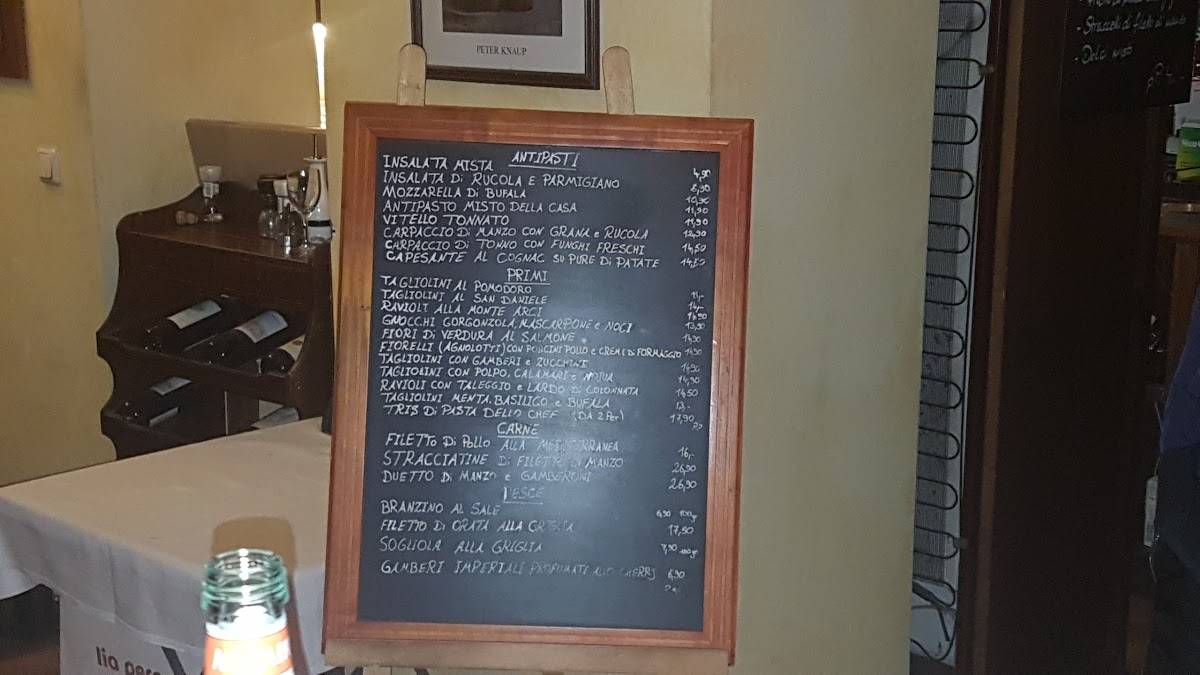 PETER KNAUP
ANTIPASTI
INSALATA MISTA 4,90
INSALATA Di RUCOLA E PARMIGIANO 8,90
MOZZARELLA Di BUFALA 10,90
ANTIPASTO MISTO DELLA CASA 11,90
VITELLO TONNATO 11,90
CARPACCIO Di MANZO CON GRANA e RUCOLA 12,90
CARPACCIO Di TONNO CON FUNGHI FRESCHI 14,50
CAPESANTE AL COGNAC SU PURE Di PATATE 14,50
PRIMI
TAGLIOLINI AL POMODORO 11,-
TAGLIOLINI AL SAN DANIELE 14,-
RAVIOLI ALLA MONTE ARCI 14,90
GNOCCHI GORGONZOLA, MASCARPONE e NOCI 13,90
FIORI Di VERDURA AL SALMONE 14,90
FIORELLI (AGNOLOTTI) CON PORCINI POLLO e CREMA Di FORMAGGIO 14,90
TAGLIOLINI CON GAMBERI e ZUCCHINI 14,90
TAGLIOLINI CON POLPO, CALAMARI e 14,90
RAVIOLI CON TALEGGIO e LARDO Di COLONNATA 14,50
TAGLIOLINI MENTA, BASILICO e BUFALA 13,-
TRIS Di PASTA DELLO CHEF (DA 2 Per) 17,90
CARNE
FILETTO Di POLLO ALLA MEDITERRANEA 16,-
STRACCIATINE Di FILETTO Di MANZO 26,90
DUETTO Di MANZO e GAMBERONI 26,90
PESCE
BRANZINO AL SALE 6,90 100gr
FILETTO Di ORATA ALLA GRIGLIA 17,50
SOGLIOLA ALLA GRIGLIA 7,90 100gr
GAMBERI IMPERIALI PROFUMATI ALLO CHERRY 6,90
- Straccetti di filetto di
- Dolci misti
lia pers